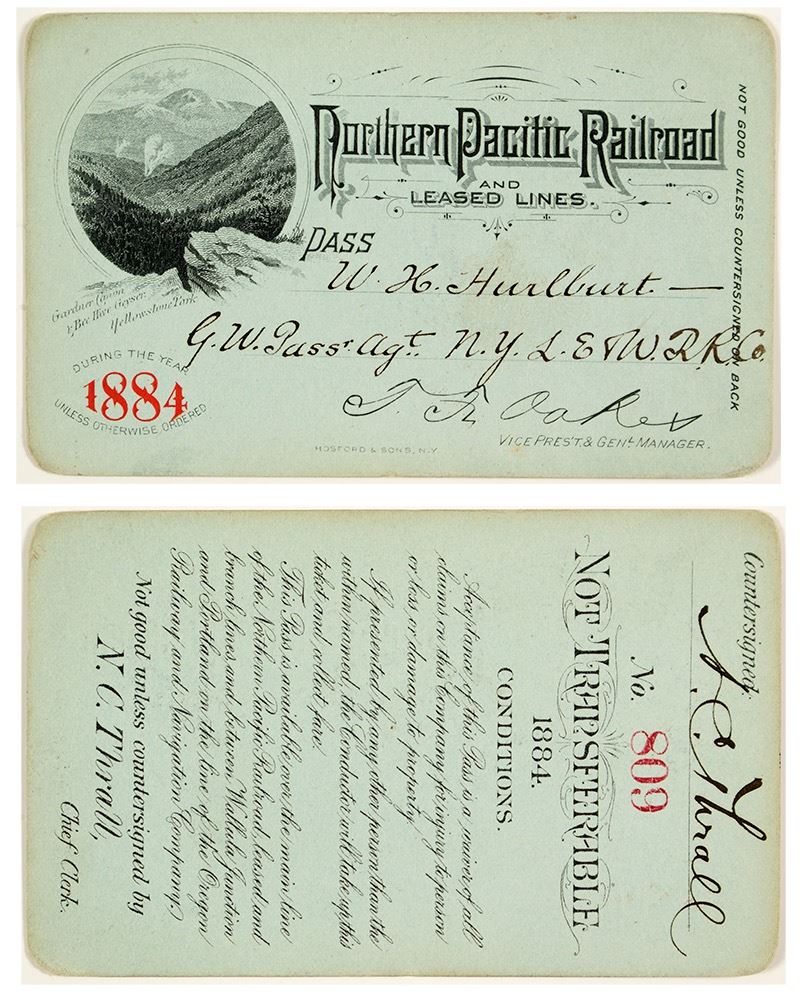 Northern Pacific Railroad
AND
LEASED LINES.
PASS
W. H. Hurlburt
G. W. Passr. Agt. N. Y. L. E & W. R. R. Co.
T. F. Oakes
VICE PRES'T. & GENL. MANAGER.
Gardner Cañon
& Bee Hive Geyser
Yellowstone Park
DURING THE YEAR
1884
UNLESS OTHERWISE ORDERED
HOSFORD & SONS, N.Y.
NOT GOOD UNLESS COUNTERSIGNED ON BACK
Countersigned,
N. C. Thrall
No. 809
NOT TRANSFERABLE
1884.
CONDITIONS.
Acceptance of this Pass is a waiver of all
claims on this Company for injury to person
or loss or damage to property.
If presented by any other person than the
within named, the Conductor will take up this
ticket and collect fare.
This Pass is available over the main line
of the Northern Pacific Railroad, leased and
branch lines, and between Wallula Junction
and Portland on the line of the Oregon
Railway and Navigation Company.
Not good unless countersigned by
N. C. Thrall,
Chief Clerk.